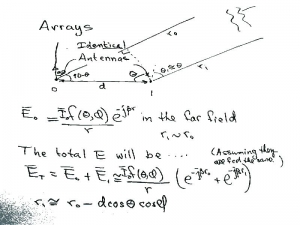 Arrays
Identical
Antennas
r₀
90-θ
θ
θ₁≈θ
r₁
0 d 1
E̅₀ = I₀f(θ,φ)/r e^-jβr in the far field
r₁~r₀
The total E will be .... (Assuming they are fed the same)
E̅_T = E̅₀ + E̅₁ ≅ I₀f(θ,φ)/r (e^-jβr₀ + e^-jβr₁)
r₁ ≅ r₀ - d cosθ cosφ